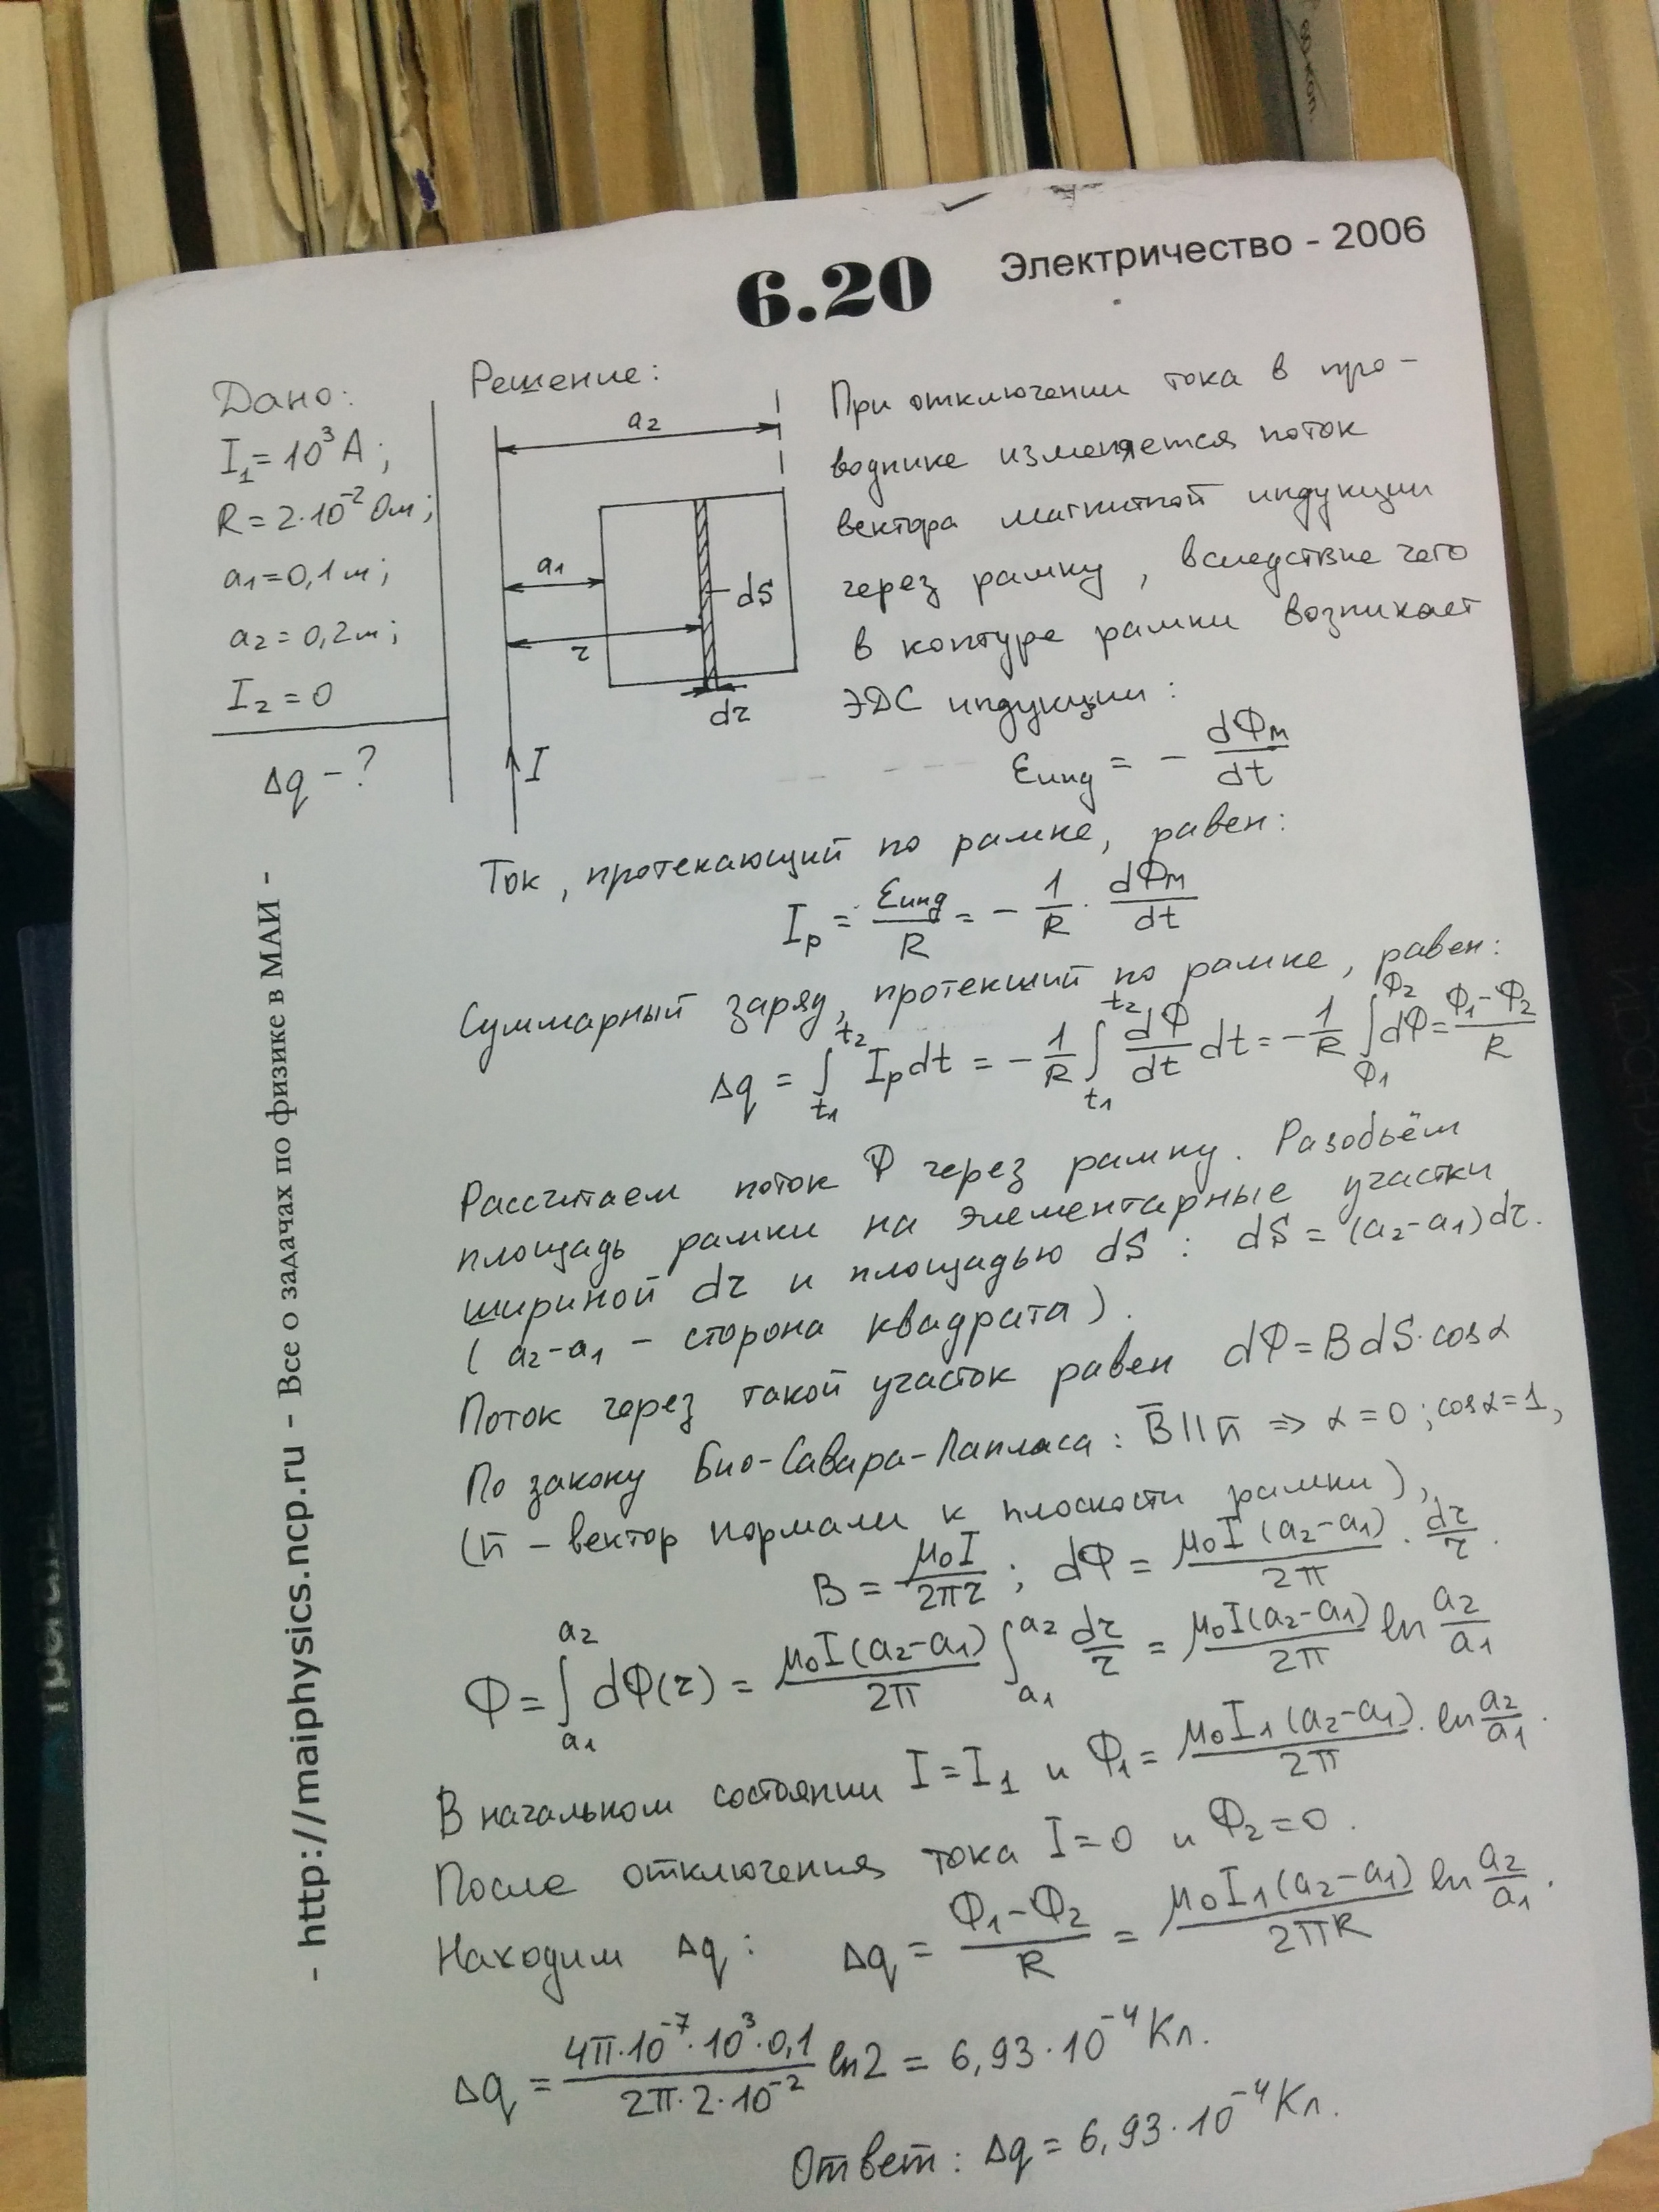 6.20
Электричество - 2006
- http://maiphysics.ncp.ru - Все о задачах по физике в МАИ -
Дано:
I₁ = 10³ А;
R = 2·10⁻² Ом;
a₁ = 0,1 м;
a₂ = 0,2 м;
I₂ = 0
Δq - ?
Решение:
a₂
a₁
dS
r
dr
I
При отключении тока в про-
воднике изменяется поток
вектора магнитной индукции
через рамку, вследствие чего
в контуре рамки возникает
ЭДС индукции:
εинд = - dΦм/dt
Ток, протекающий по рамке, равен:
Iр = εинд/R = - 1/R · dΦм/dt
Суммарный заряд, протекший по рамке, равен:
Δq = ∫_{t₁}^{t₂} Iр dt = - 1/R ∫_{t₁}^{t₂} dΦ/dt dt = - 1/R ∫_{Φ₁}^{Φ₂} dΦ = (Φ₁-Φ₂)/R
Рассчитаем поток Φ через рамку. Разобьём
площадь рамки на элементарные участки
шириной dr и площадью dS : dS = (a₂-a₁)dr.
( a₂-a₁ - сторона квадрата).
Поток через такой участок равен dΦ = B dS·cosα
По закону Био-Савара-Лапласа: B̄ || n̄ ⇒ α = 0 ; cosα = 1,
(n̄ - вектор нормали к плоскости рамки),
B = μ₀I/2πr ; dΦ = μ₀I(a₂-a₁)/2π · dr/r.
Φ = ∫_{a₁}^{a₂} dΦ(r) = μ₀I(a₂-a₁)/2π ∫_{a₁}^{a₂} dr/r = μ₀I(a₂-a₁)/2π ln a₂/a₁
В начальном состоянии I = I₁ и Φ₁ = μ₀I₁(a₂-a₁)/2π · ln a₂/a₁.
После отключения тока I = 0 и Φ₂ = 0.
Находим Δq : Δq = (Φ₁-Φ₂)/R = μ₀I₁(a₂-a₁)/2πR ln a₂/a₁.
Δq = 4π·10⁻⁷·10³·0,1/2π·2·10⁻² ln2 = 6,93·10⁻⁴ Кл.
Ответ: Δq = 6,93·10⁻⁴ Кл.